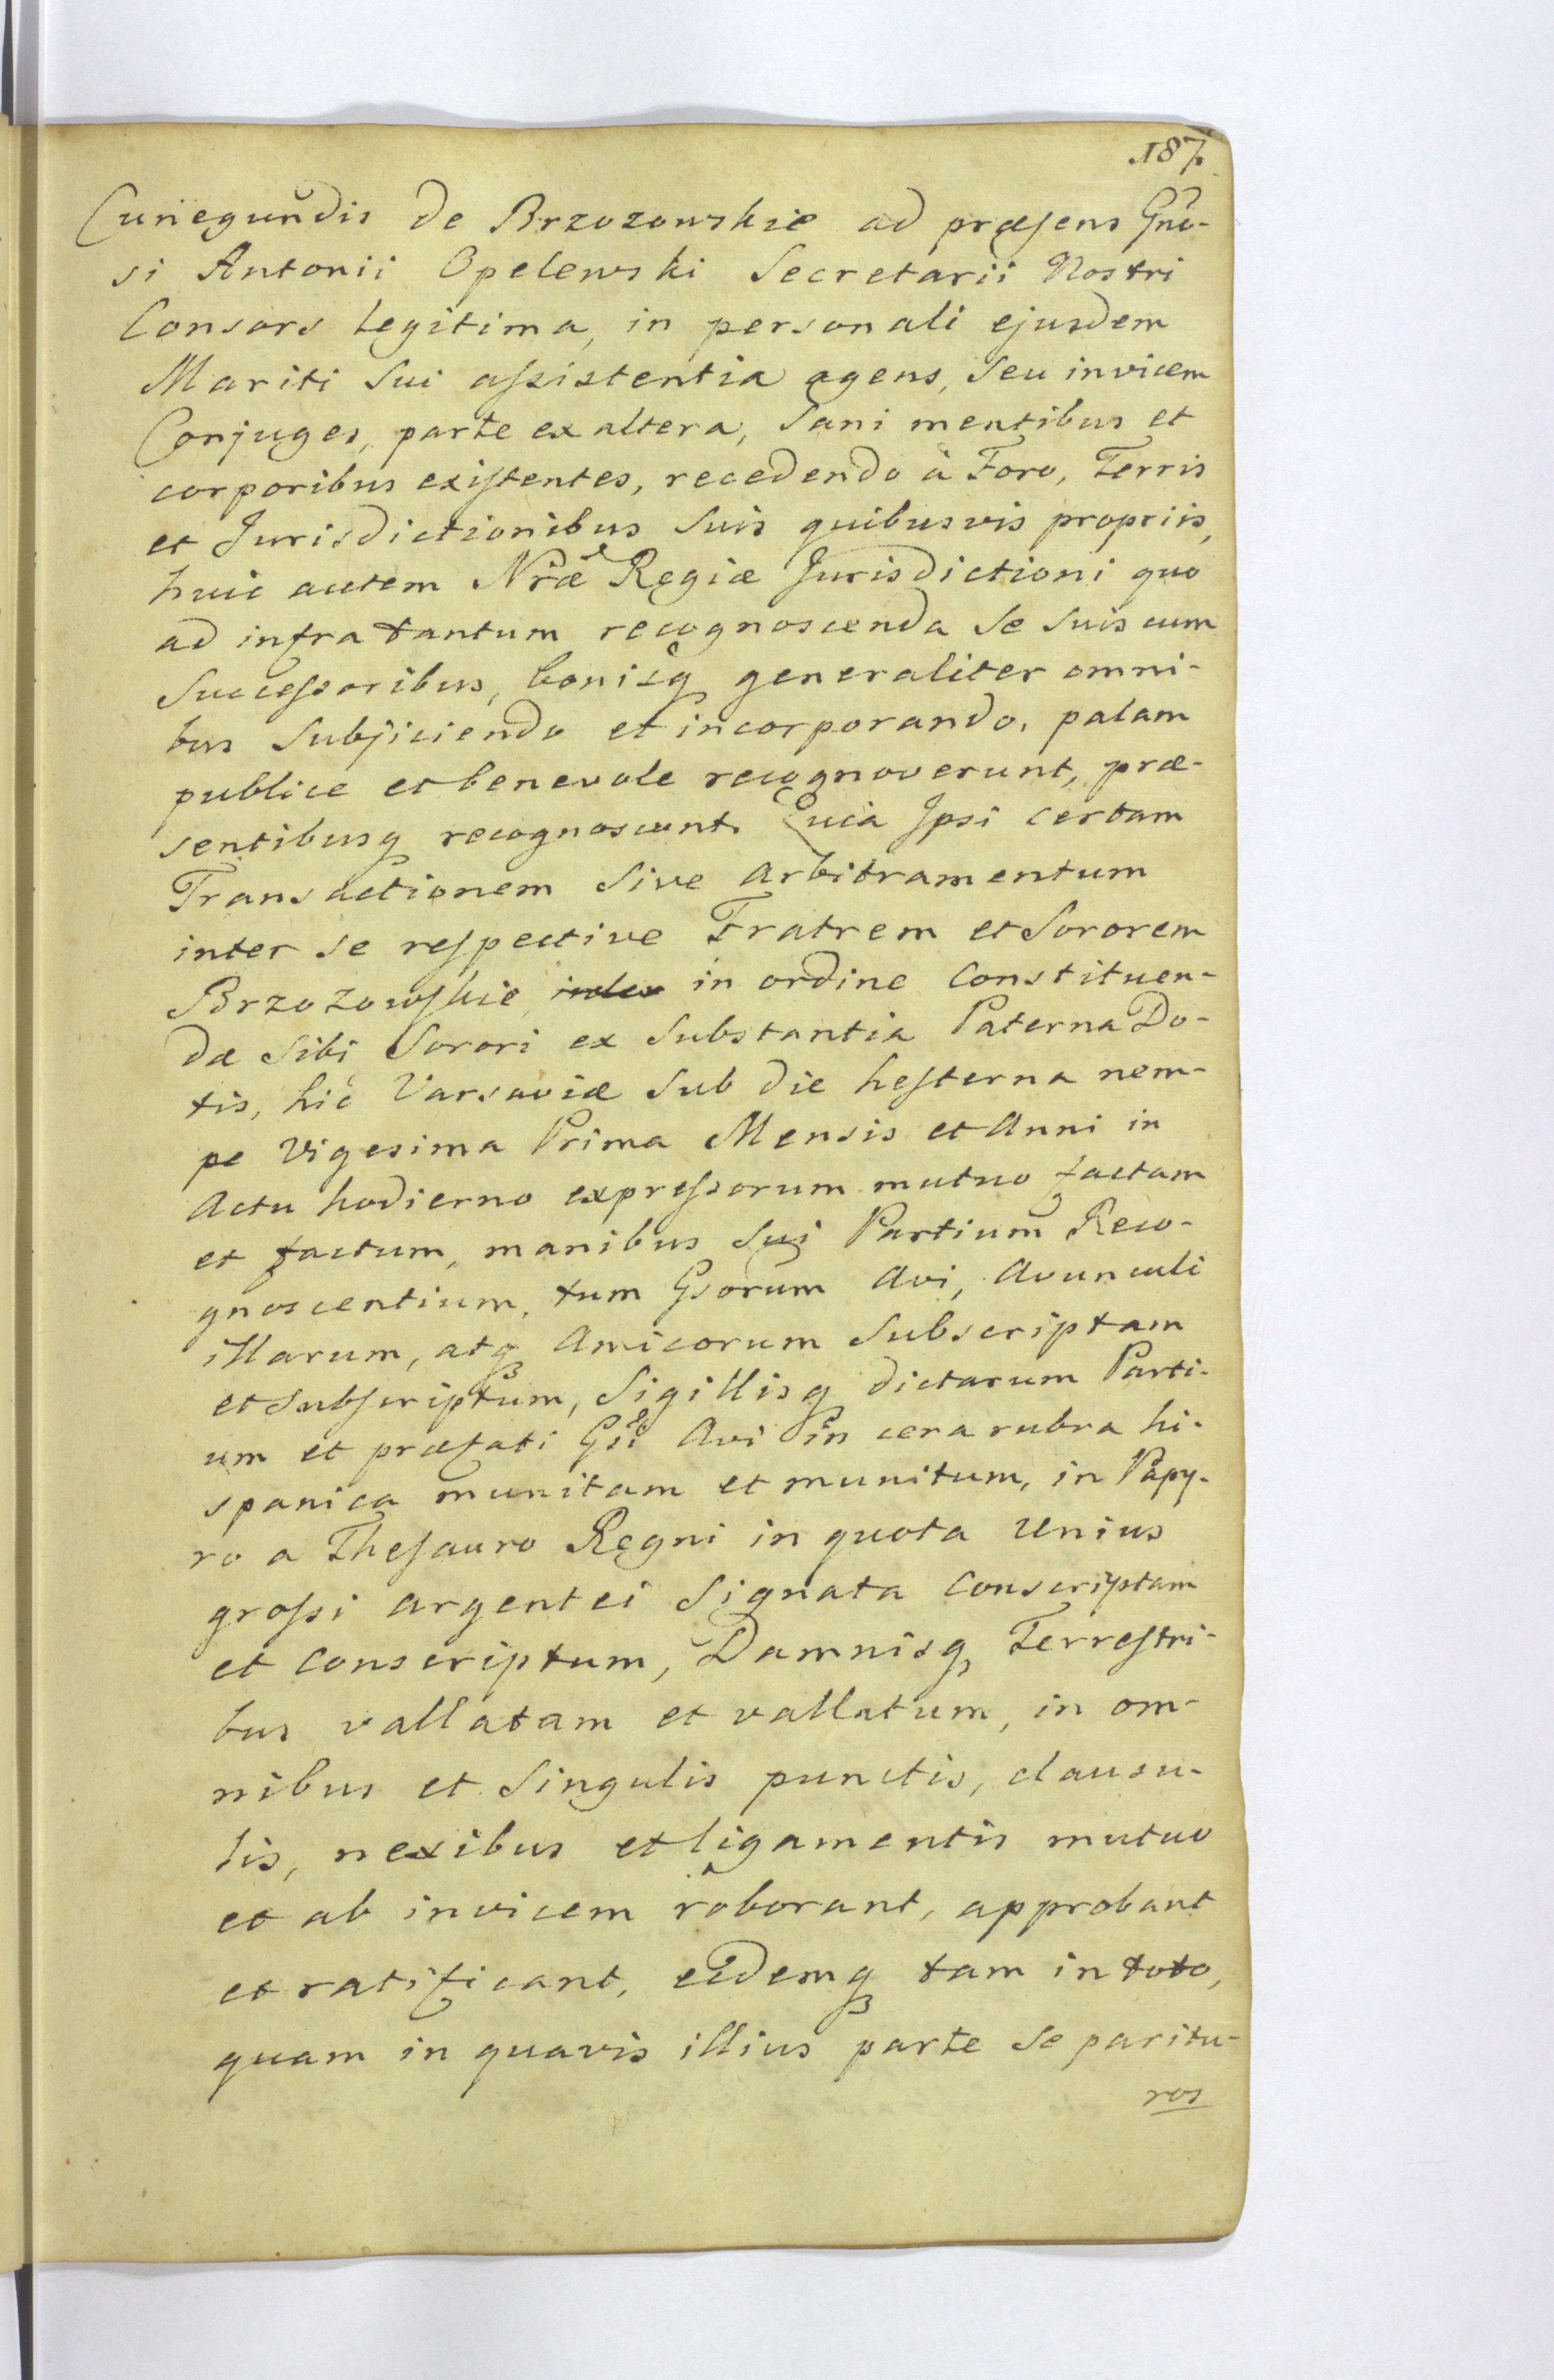 187.
Cunegundis de Brzozowskie ad præsens Gno-
si Antonii Opelewski Secretarii Nostri
Consors legitima, in personali ejusdem
Mariti Sui assistentia agens, Seu invicem
Conjuges, parte ex altera, Sani mentibus et
corporibus existentes, recedendo à Foro, Terris
et Jurisdictionibus Suis quibusvis propriis,
huic autem Nræ Regiæ Jurisdictioni quo
ad infra tantum recognoscenda Se Suis cum
Successoribus, bonisq generaliter omni-
bus Subjiciendo et incorporando, palam
publice et benevole recognoverunt, præ-
sentibusq recognoscunt. Quia Ipsi certam
Transactionem Sive Arbitramentum
inter se respective Fratrem et Sororem
Brzozowskie in ordine Constituen-
dæ Sibi Sorori ex Substantia Paterna Do-
tis, hic Varsaviæ Sub die hesterna nem-
pe Vigesima Prima Mensis et Anni in
Actu hodierno expressorum mutuo factam
et factum, manibus Sui Partium Reco-
gnoscentium, tum Gsorum Avi, Avunculi
illarum, atq Amicorum Subscriptam
et Subscriptum, Sigillisq dictarum Parti-
um et præfati Gsi Avi in cera rubra hi-
spanica munitam et munitum, in Papy-
ro a Thesauro Regni in quota Unius
grossi argentei Signata Conscriptam
et Conscriptum, Damnisq Terrestri-
bus vallatam et vallatum, in om-
nibus et Singulis punctis, clausu-
lis, nexibus et ligamentis mutuo
et ab invicem roborant, approbant
et ratificant, eidemq tam in toto,
quam in quavis illius parte Se paritu-
ros